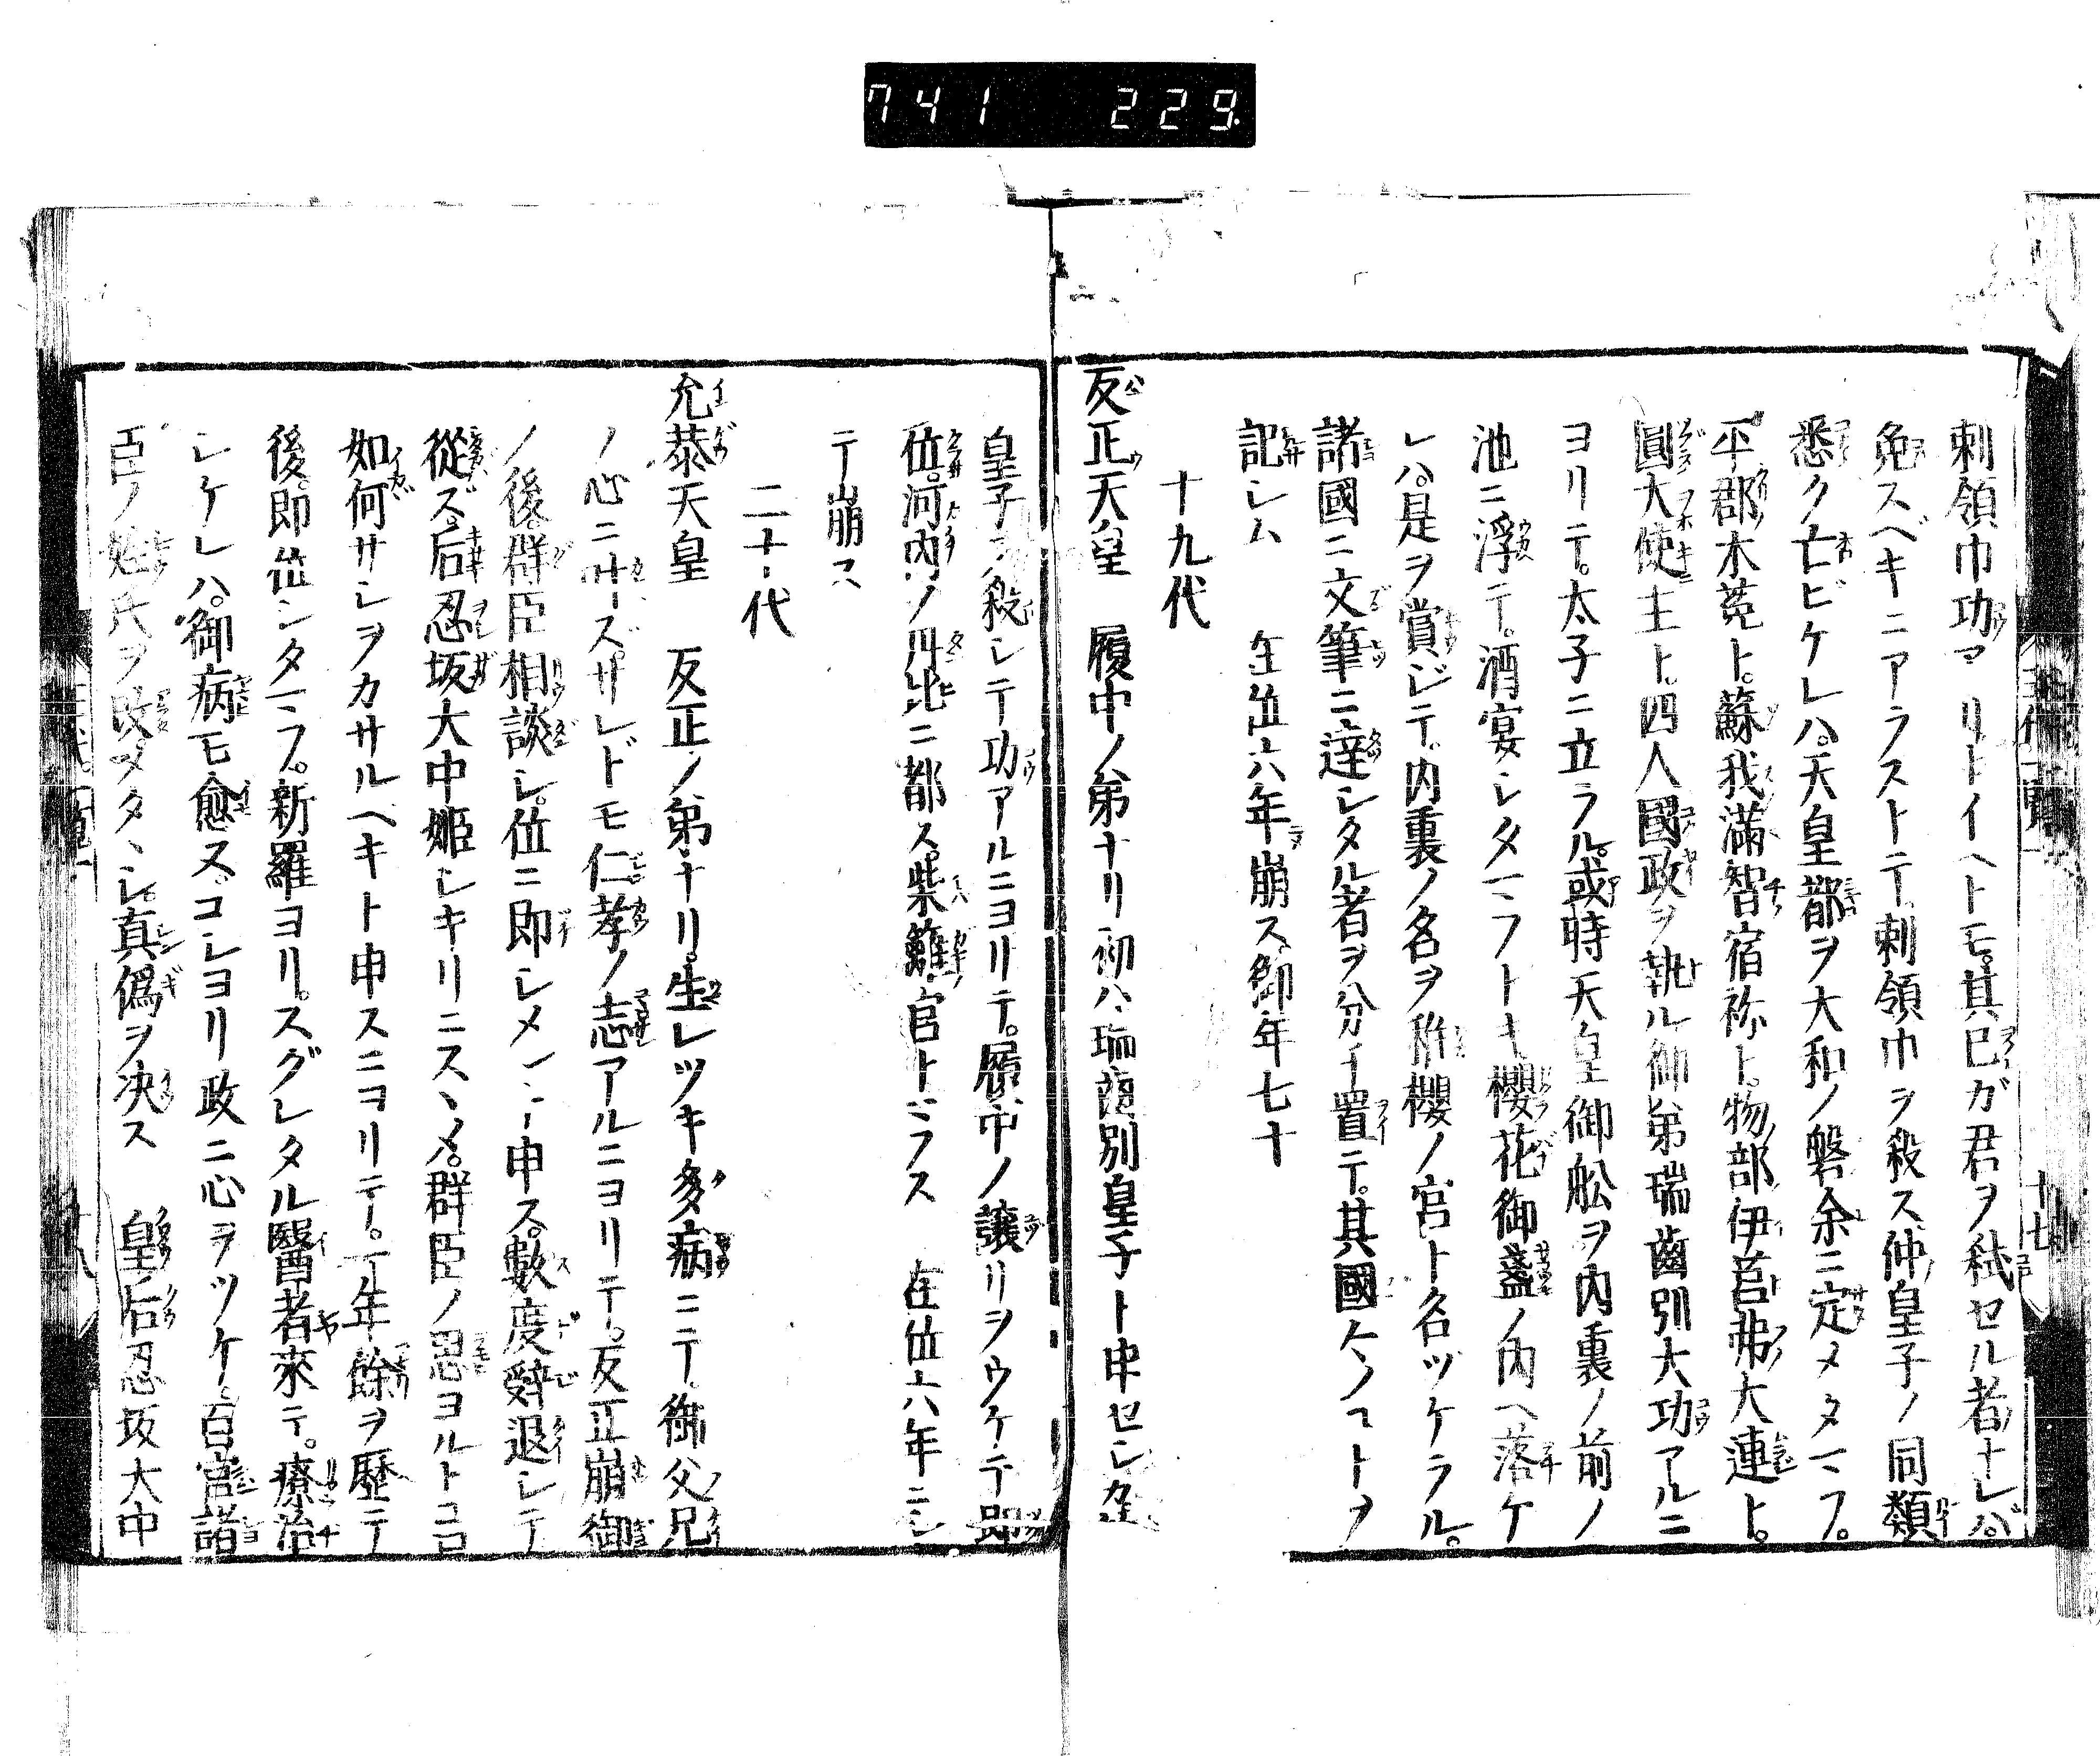 741 229.
刺領巾功アリトイヘトモ。其已ガ君ヲ弑セル者ナレバ。
免スベキニアラストテ。刺領巾ヲ殺ス。仲皇子ノ同類
悉ク亡ビケレハ。天皇都ヲ大和ノ磐余ニ定メタマフ。
平郡木菟ト。蘇我滿智宿祢ト。物部伊莒弗大連ト。
圓大使主ト。四人國政ヲ執ル御弟瑞齒別大功アルニ
ヨリテ。太子ニ立ラル。或時天皇御舩ヲ内裏ノ前ノ
池ニ浮テ。酒宴シタマフトキ。櫻花御盞ノ内ヘ落ケ
レハ。是ヲ賞ジテ。内裏ノ名ヲ稚櫻ノ宮ト名ツケラル。
諸國ニ文筆ニ達シタル者ヲ分チ置テ。其國々ノコトヲ
記シム 在位六年崩ス。御年七十
十九代
反正天皇 履中ノ弟ナリ初ハ瑞歯別皇子ト申セシカ
皇子ヲ殺シテ功アルニヨリテ。履中ノ讓リヲウケテ即
位。河内ノ丹比ニ都ス。柴籬ノ宮トイフ 在位六年ニシ
テ崩ス
二十代
允恭天皇 反正ノ弟ナリ。生レツキ多病ニテ。御父兄
ノ心ニ叶ハズ。サレドモ仁孝ノ志アルニヨリテ。反正崩御
ノ後。群臣相談シ。位ニ即シメント申ス。數度辞退シテ
從ズ。后忍坂大中姫シキリニスヽメ。群臣ノ思ヨルトコロ
如何サシヲカサルヘキト申スニヨリテ。一年餘ヲ歴テ
後。即位シタマフ。新羅ヨリ。スグレタル醫者來テ。療治
シケレハ。御病モ愈ス。コレヨリ政ニ心ヲツケ。百官諸
臣ノ姓氏ヲ改メタヽシ。真僞ヲ决ス 皇后忍坂大中